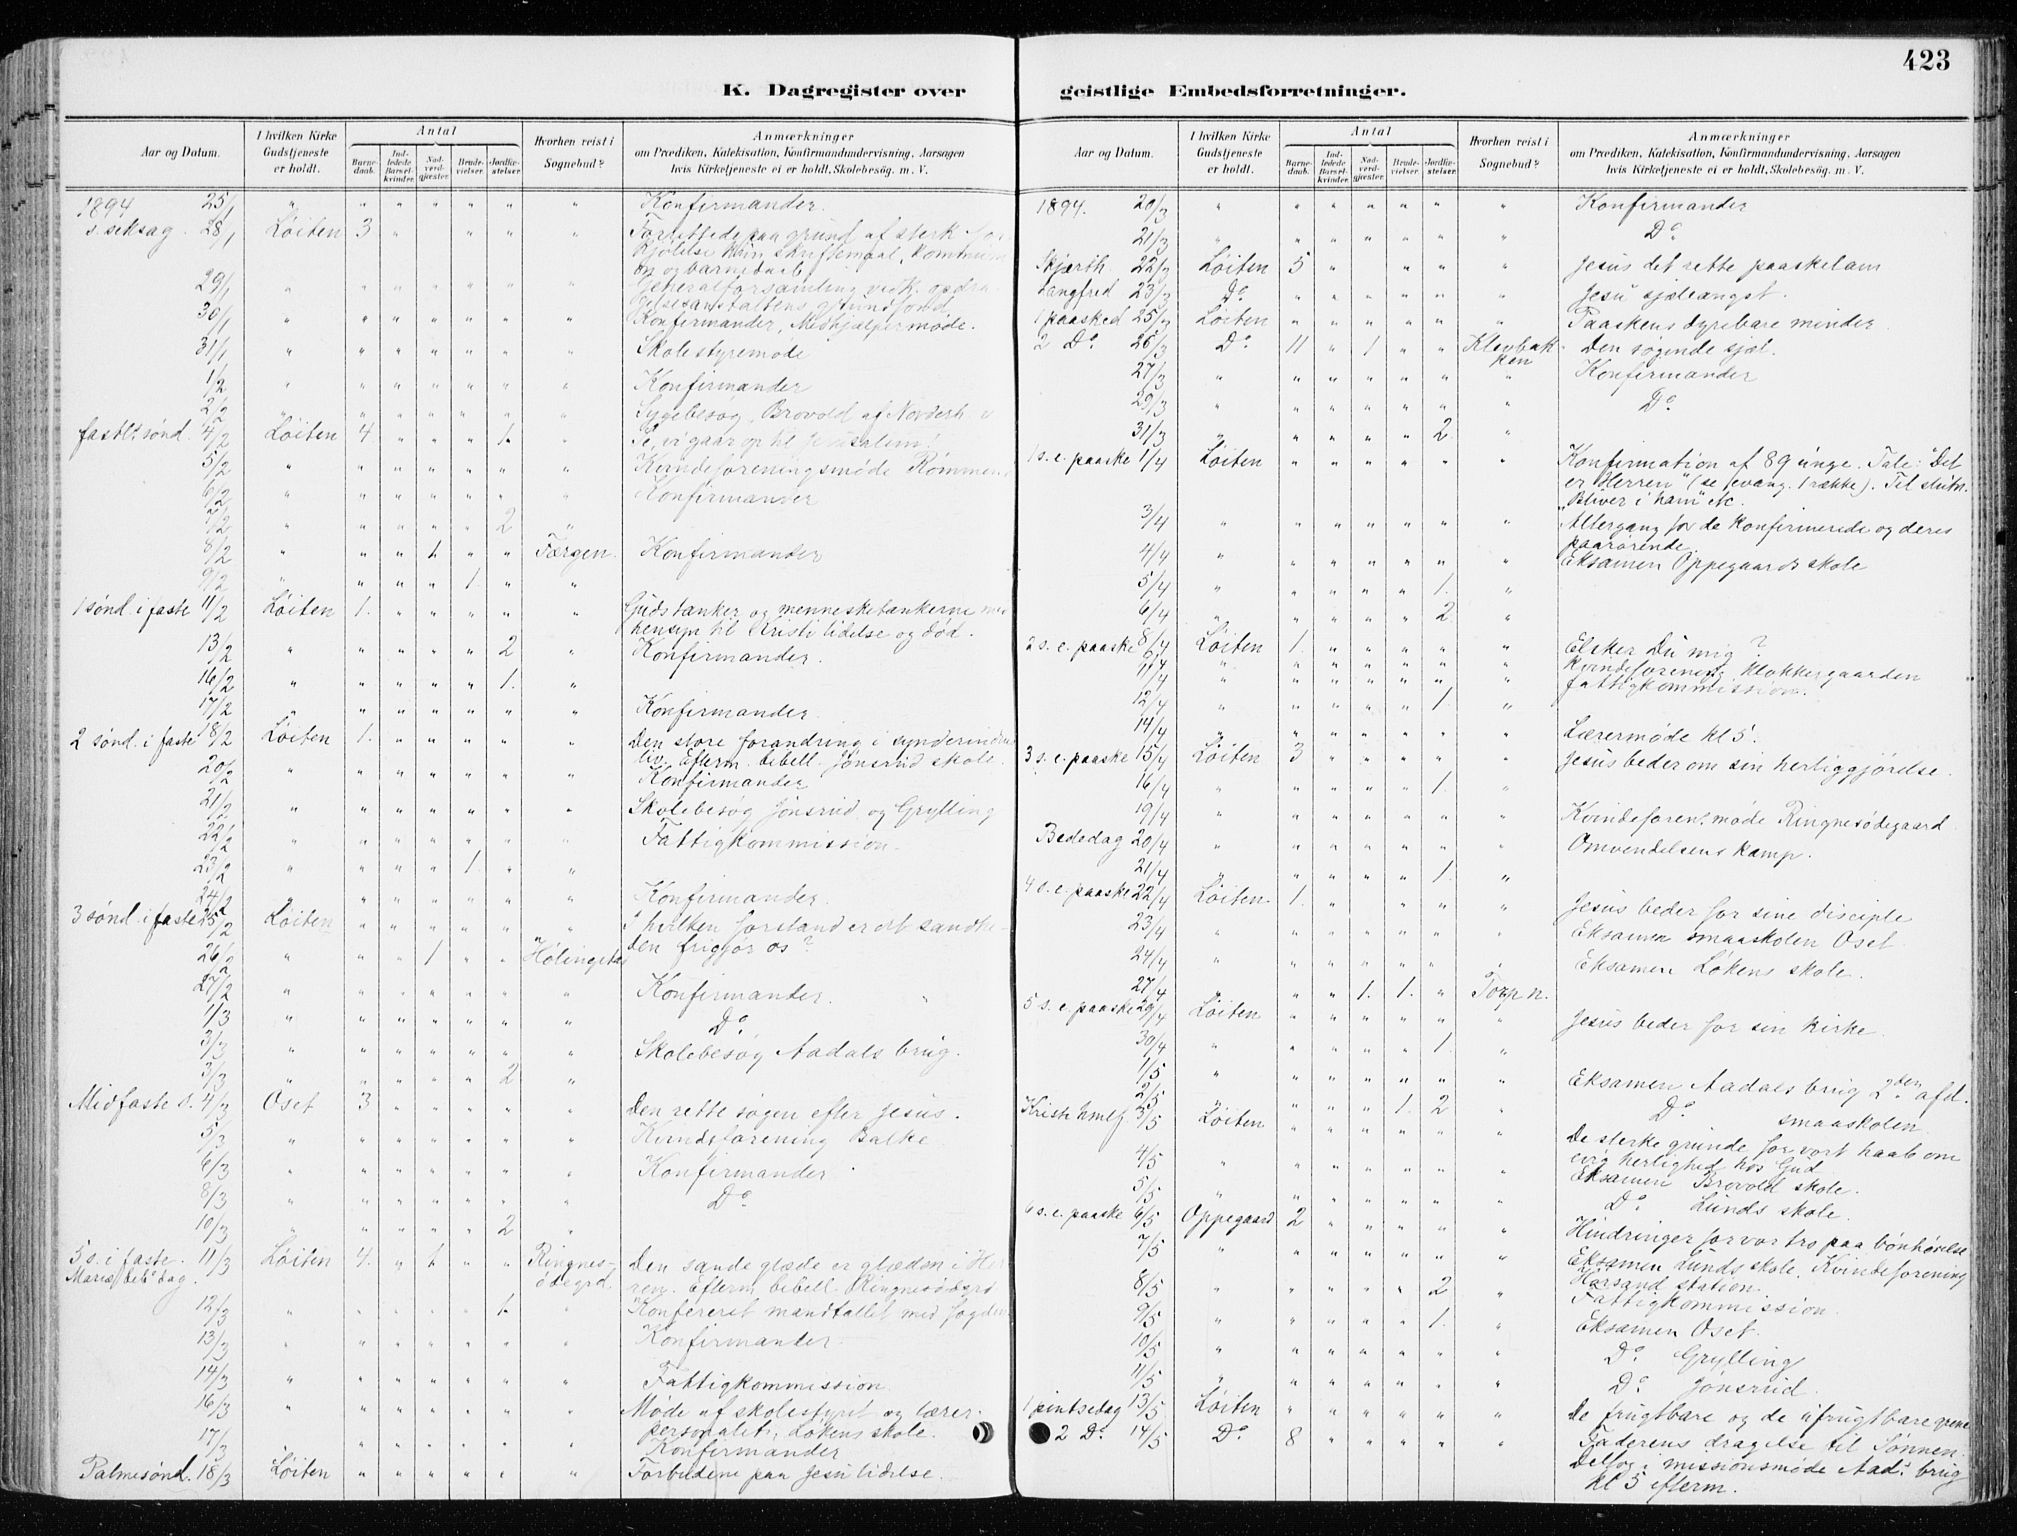 423
K. Dagregister over geistlige Embedsforretninger.
Aar og Datum.
I hvilken Kirke Gudstjeneste er holdt.
Antal
Barnedaab.
Indledede Barselkvinder.
Nadverdgjester.
Brudevielser.
Jordfæstelser.
Hvorhen reist i Sognebud?
Anmærkninger
om Prædiken, Katekisation, Konfirmandundervisning, Aarsagen
hvis Kirketjeneste ei er holdt, Skolebesøg. m. V.
1894 25/1 " " " " " " " Konfirmander.
s. seksag. 28/1 Løiten 3 " " " " " Forrettede paa grund af sterk for-
kjølelse kun skriftemaal, kommuni-
on og barnedaab.
29/1 " " " " " " " Generalforsamling vedk. opdra-
gelsesanstaltens grundfond.
30/1 " " " " " " " Konfirmander, Medhjælpermøde.
31/1 " " " " " " " Skolestyremøde
1/2 " " " " " " " Konfirmander
2/2 " " " " " " Sygebesøg, Brovold af Norderh
fastel. sønd. 4/2 Løiten 4. " " " 1. " Se, vi gaar op til Jerusalem!
5/2 " " " " " " " Kvindeforeningsmøde Rømmen.
6/2 " " " " " " Konfirmander
7/2 " " " " " 2 "
8/2 " " " 1. " " Færgen. Konfirmander
9/2 " " " " 1. " "
1 sønd. i faste 11/2 Løiten 1. " " " " " Guds tanker og mennesketankerne med
hensyn til Kristi lidelse og død.
13/2 " " " " " 2 " Konfirmander.
16/2 " " " " " 1. "
17/2 " " " " " " " Konfirmander.
2 sønd. i faste 18/2 Løiten 1. " " " " " Den store forandring i synderinden
liv. Efterm. bibell. Jønsrud skole.
20/2 " " " " " " " Konfirmander
21/2 " " " " " " " Skolebesøg Jønsrud og Grylling
22/2 " " " " " " " Fattigkommission.
23/2 " " " " 1. " "
24/2 " " " " " " Konfirmander.
3 sønd. i faste 25/2 Løiten " " " " " " I hvilken forstand er det sandhe-
den frigjør os?
26/2 " " " 1 " "
27/2 " " " " " " " Konfirmander.
1/3 " " " " " " " Do
3/3 " " " " " " " Skolebesøg Aadals brug.
3/3 " " " " " 2 "
Midfaste s. 4/3 Oset 3 " " " " " Den rette søgen efter Jesus.
5/3 " " " " " " " Kvindeforening Balke
6/3 " " " " " " " Konfirmander
8/3 " " " " " " " Do
10/3 " " " " " 2 "
5 s. i faste. 11/3 Løiten 4. " 1. " " Ringnes- Den sande glæde er glæden i Her-
Mariæ beb. dag. ødegrd. ren. Efterm. bibell. Ringnesødegrd
12/3 " " " " " 1. " Konfereret mandtallet med fogden
13/3 " " " " " " " Konfirmander.
14/3 " " " " " " " Fattigkommission
16/3 " " " " " " " Møde af skolestyret og lærer-
personalet, Løkens skole.
17/3 " " " " " " " Konfirmander
Palmesønd. 18/3 Løiten " " " " " " Forbudene paa Jesu lidelse.
Aar og Datum.
I hvilken Kirke Gudstjeneste er holdt.
Antal
Barnedaab.
Indledede Barselkvinder.
Nadverdgjester.
Brudevielser.
Jordfæstelser.
Hvorhen reist i Sognebud?
Anmærkninger
om Prædiken, Katekisation, Konfirmandundervisning, Aarsagen
hvis Kirketjeneste ei er holdt, Skolebesøg. m. V.
1894. 20/3 " " " " " " " Konfirmander
21/3 " " " " " " " Do
Skjærth. 22/3 Løiten 5 " " " " Jesus det rette paaskelam
Langfred 23/3 Do " " " " " " Jesu sjæleangst.
1 paasked 25/3 Løiten " " " " " " Paaskens dyrebare minder
2 Do 26/3 Do 11 " 1 " " Klevbak- Den søgende sjæl.
ken
27/3 " " " " " " " Konfirmander
29/3 " " " " " " Do
31/3 " " " " " 2. "
1 s. e. paaske 1/4 Løiten " " " " " " Konfirmation af 89 unge. Tale: "Det
er Herren" (se evang. 1 række). Til slutn.
"Bliver i ham" etc.
3/4 " " " " " " " Altergang for de konfirmerede og deres
paarørende.
4/4 " " " " " " Eksamen Oppegaards skole
5/4 " " " " " 1. "
6/4 " " " " " 2. "
2 s. e. paaske 8/4 Løiten 1. " " " " " Elsker Du mig?
9/4 " " " " " " " Kvindeforening Klokkergaarden
11/4 " " " " " " " Fattigkommission.
12/4 " " " " " 1. "
14/4 " " " " " " " Lærermøde kl 5.
3 s. e. paaske 15/4 Løiten 3 " " " " " Jesus beder om sin herliggjørelse.
16/4 " " " " " 1. "
19/4 " " " " " " Kvindeforen. møde Ringnesødegaard
Bededag 20/4 " " " " " " " Omvendelsens kamp.
21/4 " " " " " 1. "
4 s. e. paaske 22/4 Løiten 1. " " " " " Jesus beder for sine disciple
23/4 " " " " " " " Eksamen smaaskolen Oset
24/4 " " " " " " " Eksamen Løkens skole.
27/4 " " " 1. 1. " Torp n.
5 s. e. paaske 29/4 Løiten " " " " " " Jesus beder for sin kirke.
30/4 " " " " " 1. "
1/5 " " " " " " " Eksamen Aadals brug 2den afd.
2/5 " " " " 1. 2 " Do smaaskolen.
Kristi hmlf. 3/5 Løiten " " " " " " De sterke grunde for vort haab om
evig herlighed hos Gud
4/5 " " " " " " " Eksamen Brovold skole.
5/5 " " " " " " " Do Lunds skole.
6 s. e. paaske 6/5 Oppegaard 2 " " " " " Hindringer for vor tro paa bønhørelse
7/5 " " " " " " " Eksamen Lunds skole. Kvindeforening
Hørsand station.
8/5 " " " " " 2 " Fattigkommission.
9/5 " " " " " 1. " Eksamen Oset.
10/5 " " " " " " " Do Grylling
11/5 " " " " " " " Do Jønsrud.
1 pintsedag 13/5 Løiten " " " " " " De frugtbare og de ufrugtbare grene
2 Do 14/5 Do 8 " " " " " Faderens dragelse til Sønnen.
Deltog i missionsmøde Aad. brug
kl 5 efterm.